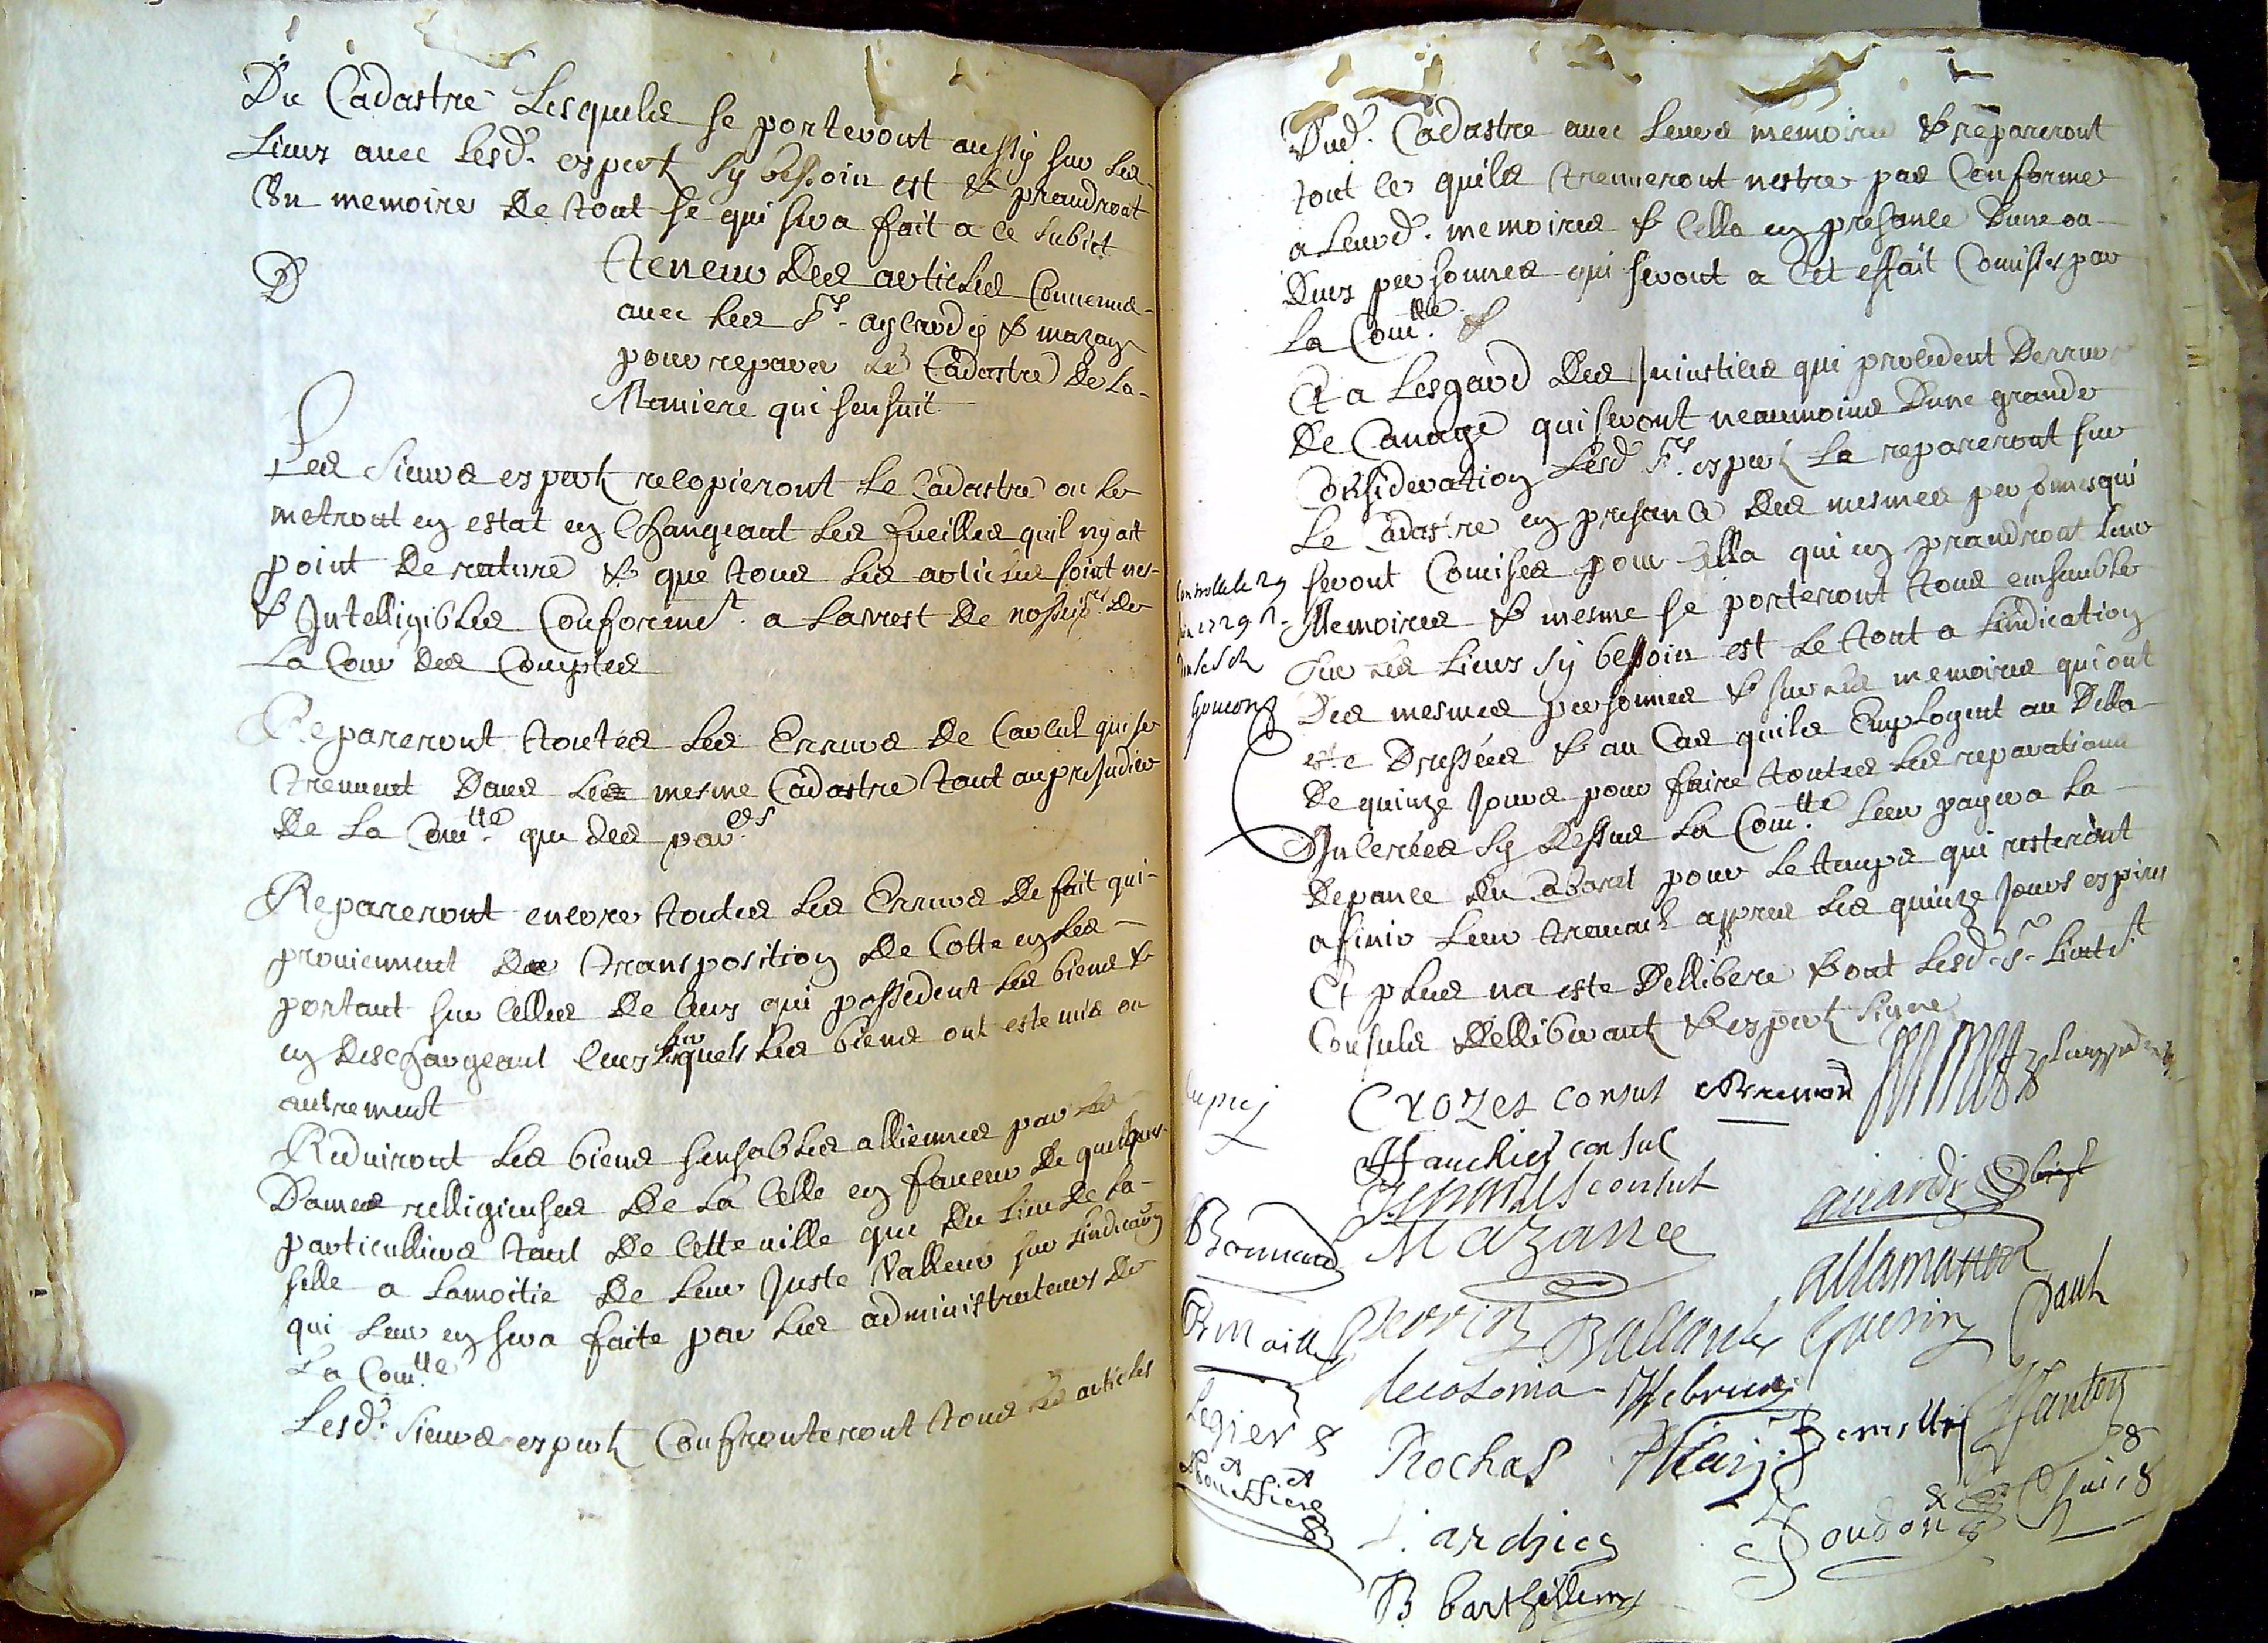 Du Cadastre Lesquels se porteront aussy sur Les
Lieux avec Lesd. expertz sy besoin est & prandront
Un memoire De tout se qui sera fait a ce subiet
D
teneur Des articles Convenus
avec Les Srs. & mazan
pour reparer Le Cadastre De La
Maniere qui sensuit
Les sieurs expertz recopieront Le Cadastre ou Le
metront en estat en Changeant Les fueilles quil ny ait
point De rature & que tous Les articles soint nes
& Intelligibles Conformt. a Larrest De nosseigrs. De
La Cour Des Comptes
Repareront toutes Les Erreurs De Calcul qui se
treuvent Dans Les mesme Cadastre tant au prejudice
De La Comtte. que des pares
Repareront encore toutes Les Erreurs De fait qui
proviennent De transposition De Cotte en Les
portant sur Celles De Ceux qui possedent Les biens &
en Deschargeant Ceux sur Lesquels Les biens ont este mis ou
autrement
Reduiront Les biens sensables allienés par Les
Dames relligieuses De La Celle en faveur De quelques
particulliers tant De Cette ville que Du Lieu De La
selle a Lamoitie De Leur Juste Valleur sur Lindicaon
qui Leur en sera faite par Les administrateurs De
La Comtte
Lesd. Sieurs expertz Confronteront tous Les articles
Dud. Cadastre avec Leurs memoires & repareront
tout Ce quils treuveront nestre pas Conforme
a Leursd. memoires & Cella en presance Dune ou
Deux personnes qui seront a Cet effait Comises par
La Comtte. &
Et a Lesgard Des Injustices qui procedent Derreur
De Canage qui seront neaumoins Dune grande
Considération Lesd Srs. expertz La repareront sur
Le Cadastre en presance Des mesmes personnes qui
seront Comises pour Cella qui en prandront Leur
Memoires & mesme se porteront tous ensemble
Sur Les Lieux sy besoin est Le tout a Lindication
Des mesmes personnes & sur Les memoires qui ont
este Dressées & au Cas quils Employent au Della
De quinze Jours pour faire toutes Les reparations
Inserées sy Dessus La Comtte. Leur payera La
Depance Du pour Le temps qui resteront
a finir Leur travail appres Les quinze Jours expirés
Et plus na este Delliberé & ont Lesd. Srs. Lieutt
Consuls Delliberantz & expertz signé
Controllé le 29
1729
Goujon
CROZES consul Brunon
Fauchier consul
consul
Bonnaud Mazane
allamanon
Maille Perrin Ballard Guerin Paul
decolonia hebrun
Legier Rochas
J. ardhieu
B barthellemy